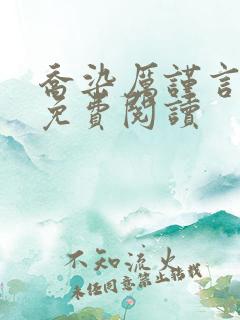 喬染厲謹言
免費閱讀
不知流火
未經同意禁止轉載